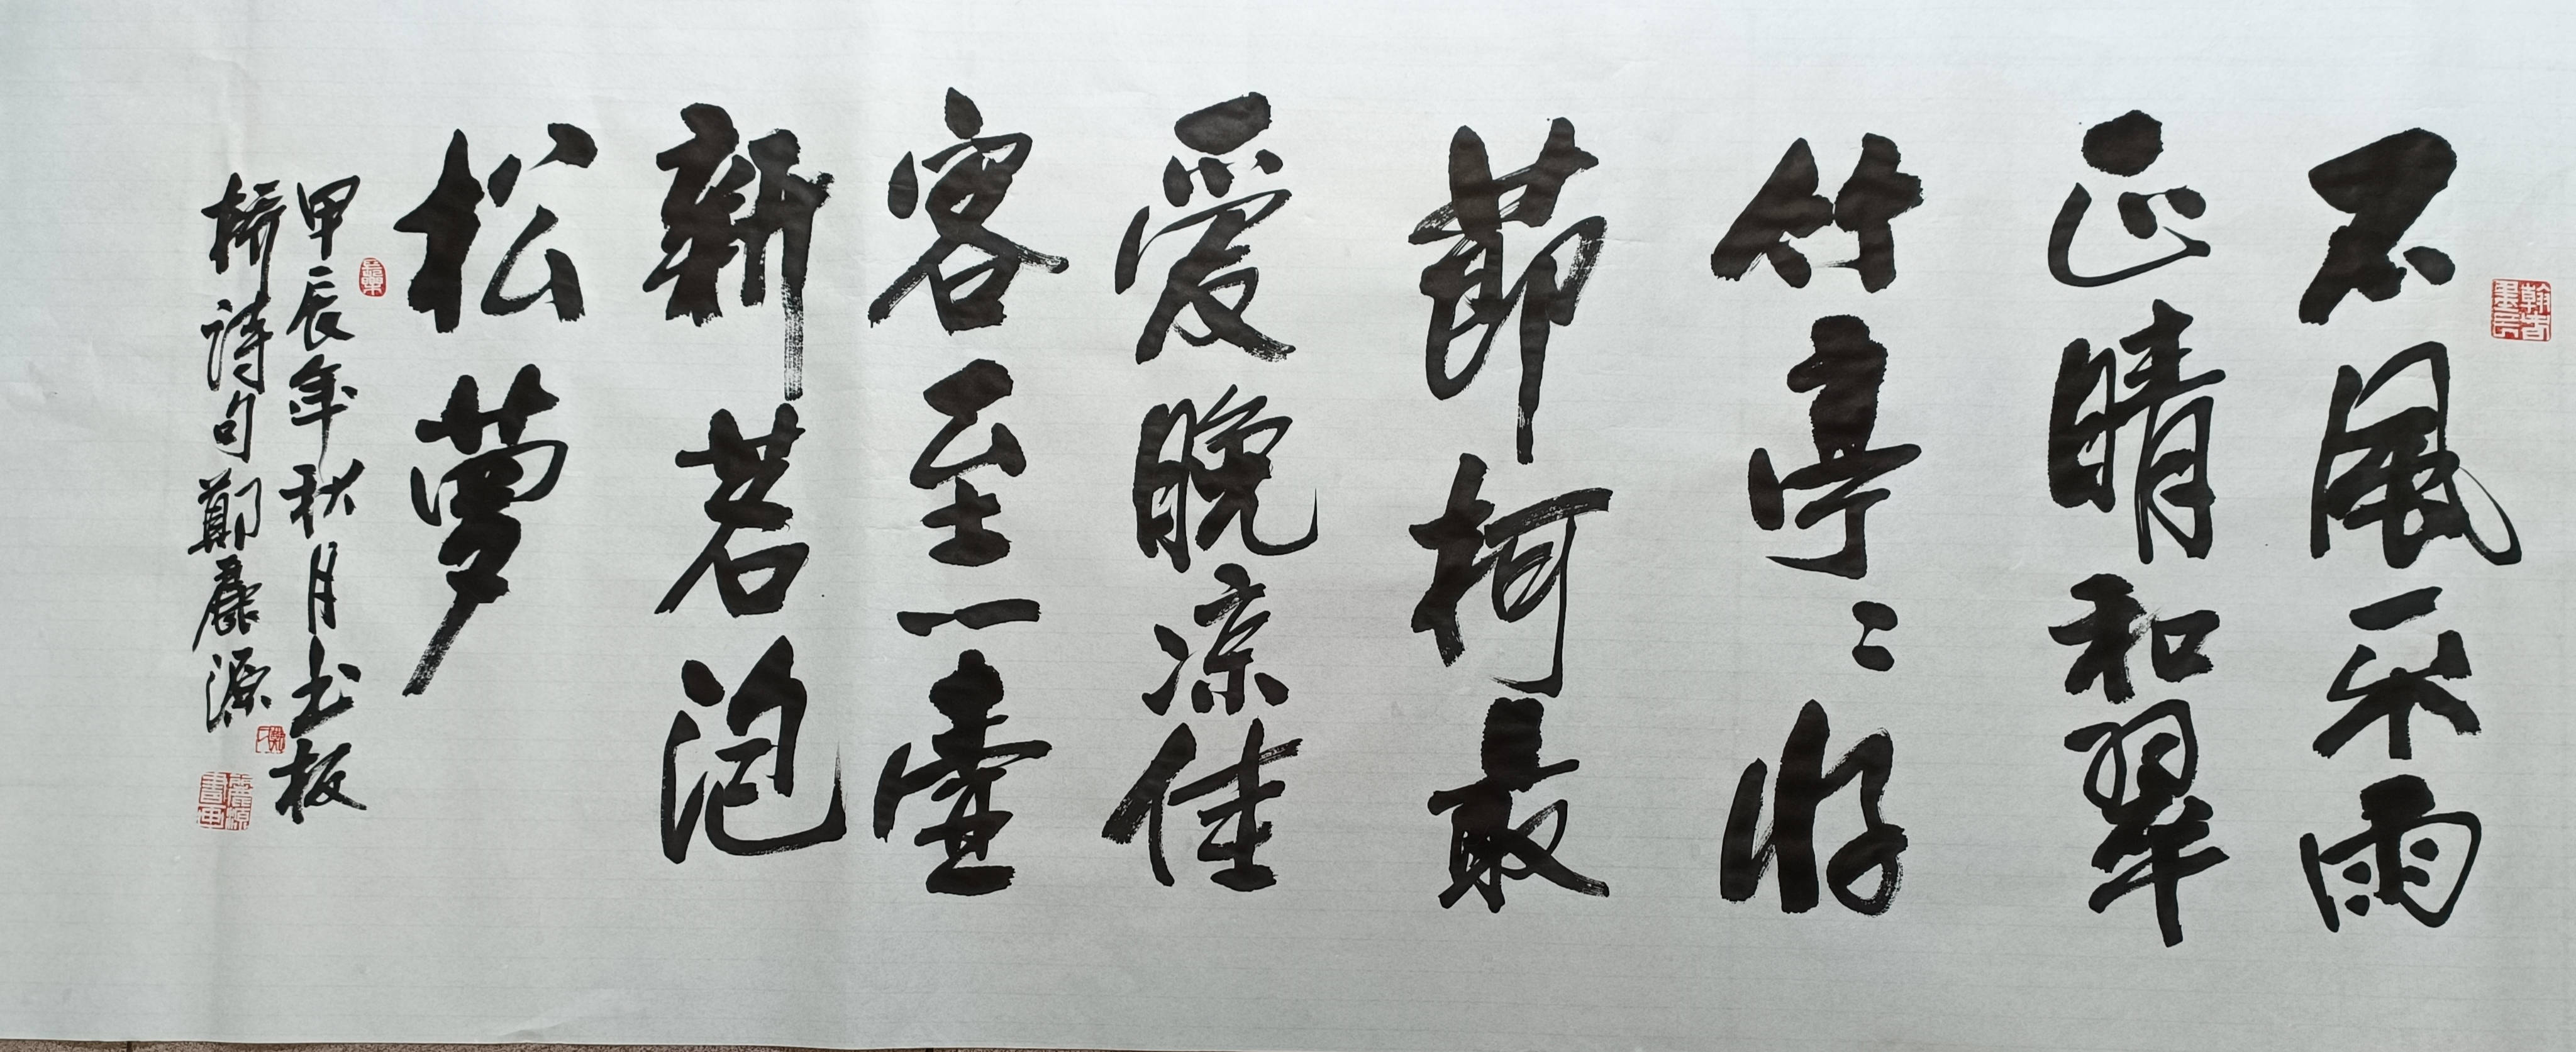 不風不雨
正晴和翠
竹亭〻好
莭柯最
爱晚凉佳
客至一壺
新茗泡
松萝
甲辰年秋月书板
橋詩句鄭麗源
麗源書画